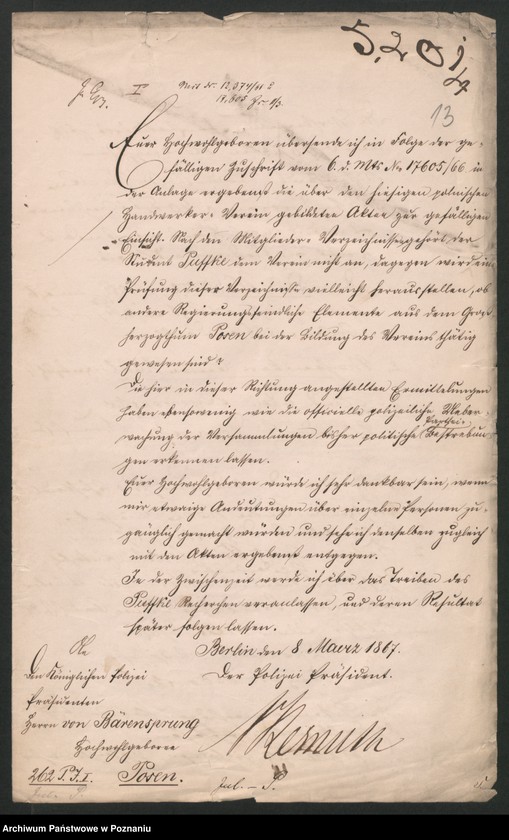 5.201/4
13
Euer Hochwohlgeboren übersende ich in Folge der ge-
fälligen Zuschrift vom 6. d. Mts No 17605/66 in
der Anlage ergebenst die über den hiesigen polnischen
Handwerker-Verein gebildeten Akten zur gefälligen
Einsicht. Nach den Mitglieder-Verzeichnissen gehört der
Student dem Verein nicht an, dagegen wird eine
Prüfung dieser Verzeichnisse vielleicht herausstellen, ob
andere Regierungsfeindliche Elemente aus dem Groß-
herzogthum Posen bei der Bildung des Vereins thätig
gewesen sind?
Die hier in dieser Richtung angestellten Ermittelungen
haben ebensowenig wie die officielle polizeiliche Ueber-
wachung der Versammlungen bisher politische Bestrebun-
gen erkennen lassen.
Euer Hochwohlgeboren würde ich sehr dankbar sein, wenn
mir etwaige Andeutungen über einzelne Personen zu-
gänglich gemacht würden und sehe ich denselben zugleich
mit den Akten ergebenst entgegen.
In der Zwischenzeit werde ich über das Treiben des
Recherchen veranlassen, und deren Resultat
später folgen lassen.
Berlin den 8 Maerz 1867.
Der Polizei Präsident.
An
den Königlichen Polizei
Präsidenten
Herrn von Bärensprung
Hochwohlgeboren
262 P.J.I. Posen.
Archiwum Państwowe w Poznaniu